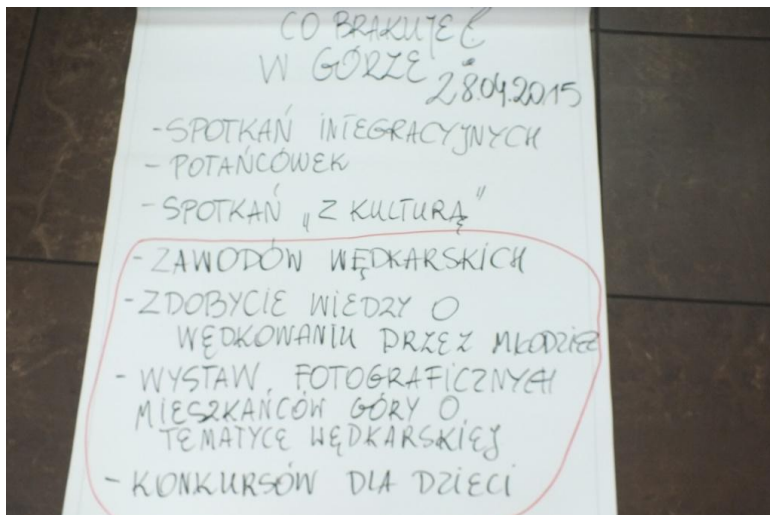 CO BRAKUJE
W GÓRZE ?
28.04.2015
- SPOTKAŃ INTEGRACYJNYCH
- POTAŃCÓWEK
- SPOTKAŃ „Z KULTURĄ"
- ZAWODÓW WĘDKARSKICH
- ZDOBYCIE WIEDZY O
WĘDKOWANIU PRZEZ MŁODZIEŻ
- WYSTAW FOTOGRAFICZNYCH
MIESZKAŃCÓW GÓRY O
TEMATYCE WĘDKARSKIEJ
- KONKURSÓW DLA DZIECI